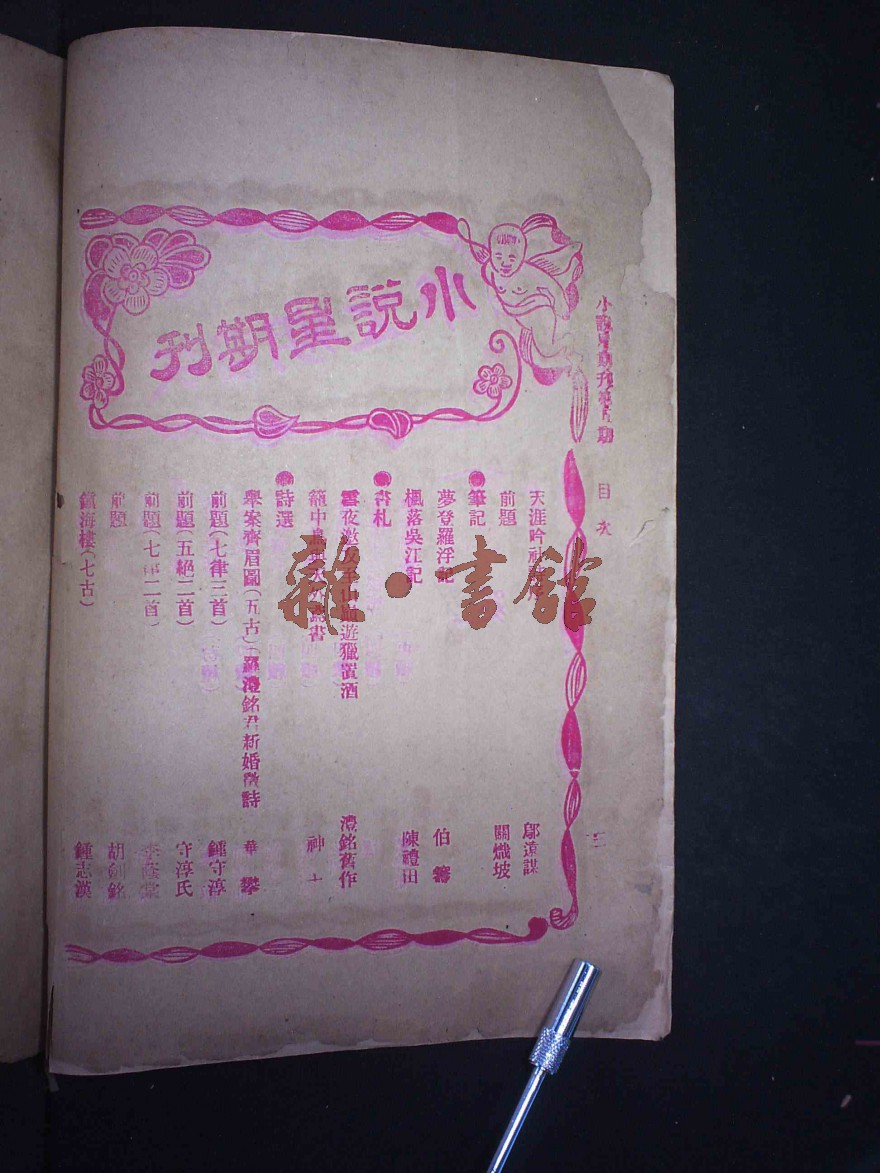 小說星期刊
小說星期刊第 期 目次 三
天涯吟社 鄔遠謀
前題 關熾坡
●筆記
夢登羅浮記 伯籌
楓落吳江記 陳禮田
●書札
雪夜邀 遊獵置酒 澧銘舊作
籠中鳥與 書 神
●詩選
舉案齊眉圖(五古)羅澧銘君新婚徵詩 華攀
前題(七律三首) 鍾守淳
前題(五絕二首) 守淳氏
前題(七律二首)
前題 胡劍銘
鎮海樓(七古) 鍾志漢
雜·書館